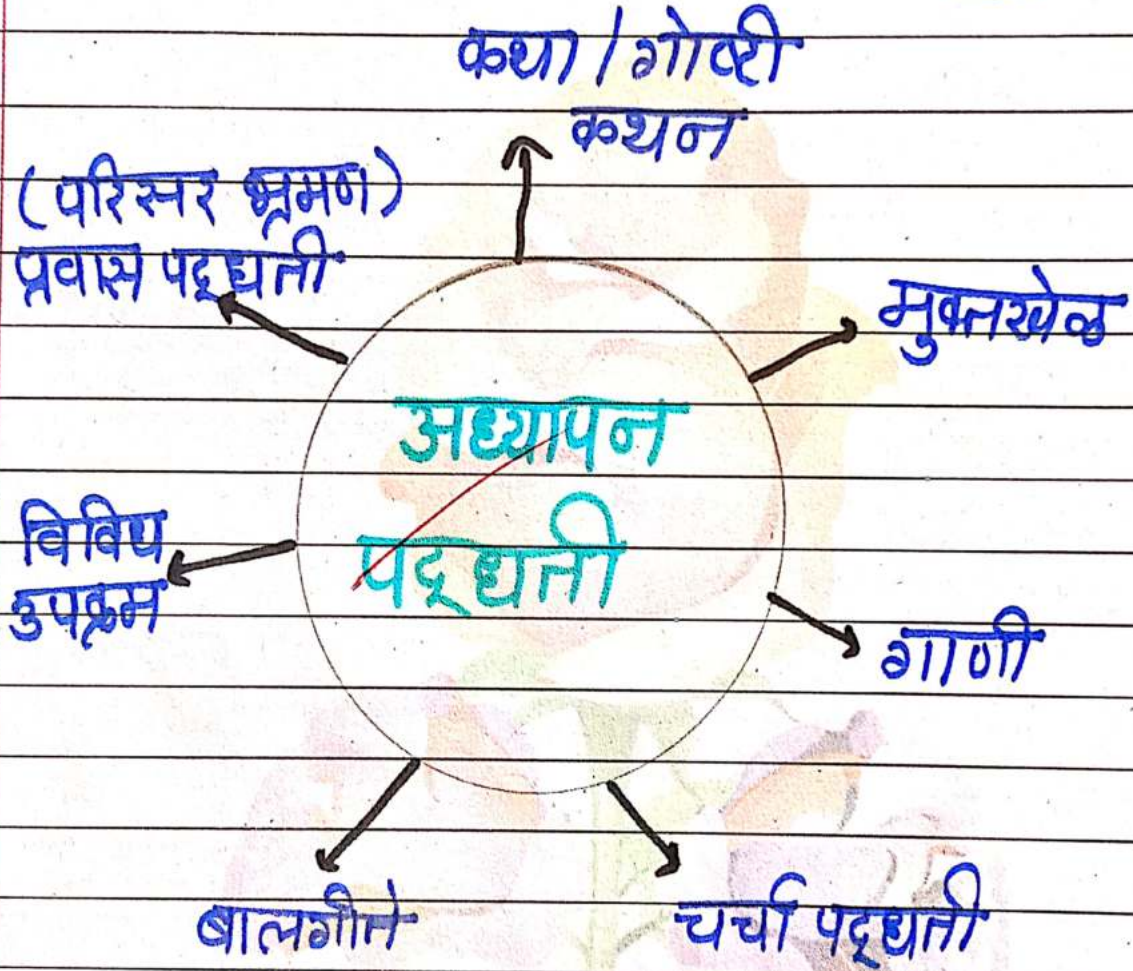 कथा / गोष्टी
कथन
(परिसर भ्रमण)
प्रवास पद्धती
मुक्तखेळ
अध्यापन
पद्धती
विविध
उपक्रम
गाणी
बालगीते
चर्चा पद्धती